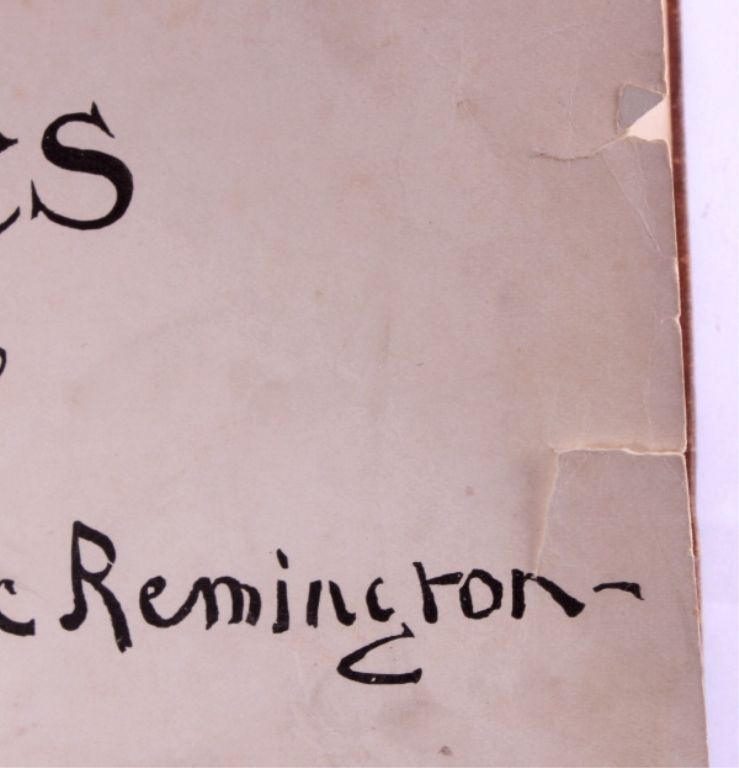 es
c Remington-